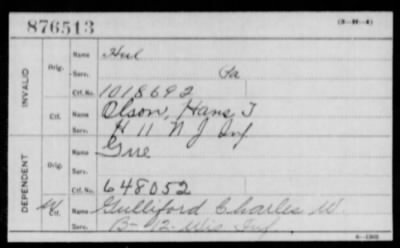 876513
(3-99-4)
INVALID
Orig.
Name Hul
Serv. Pa
Ctf. No. 1018692
Ctf.
Name Olson, Hans T
Serv. H 11 N J Inf
DEPENDENT
Orig.
Name Gue
Serv.
Ctf. No. 648052
W Ctf.
Name Gulliford Charles W.
Serv. B-12-Wis Inf